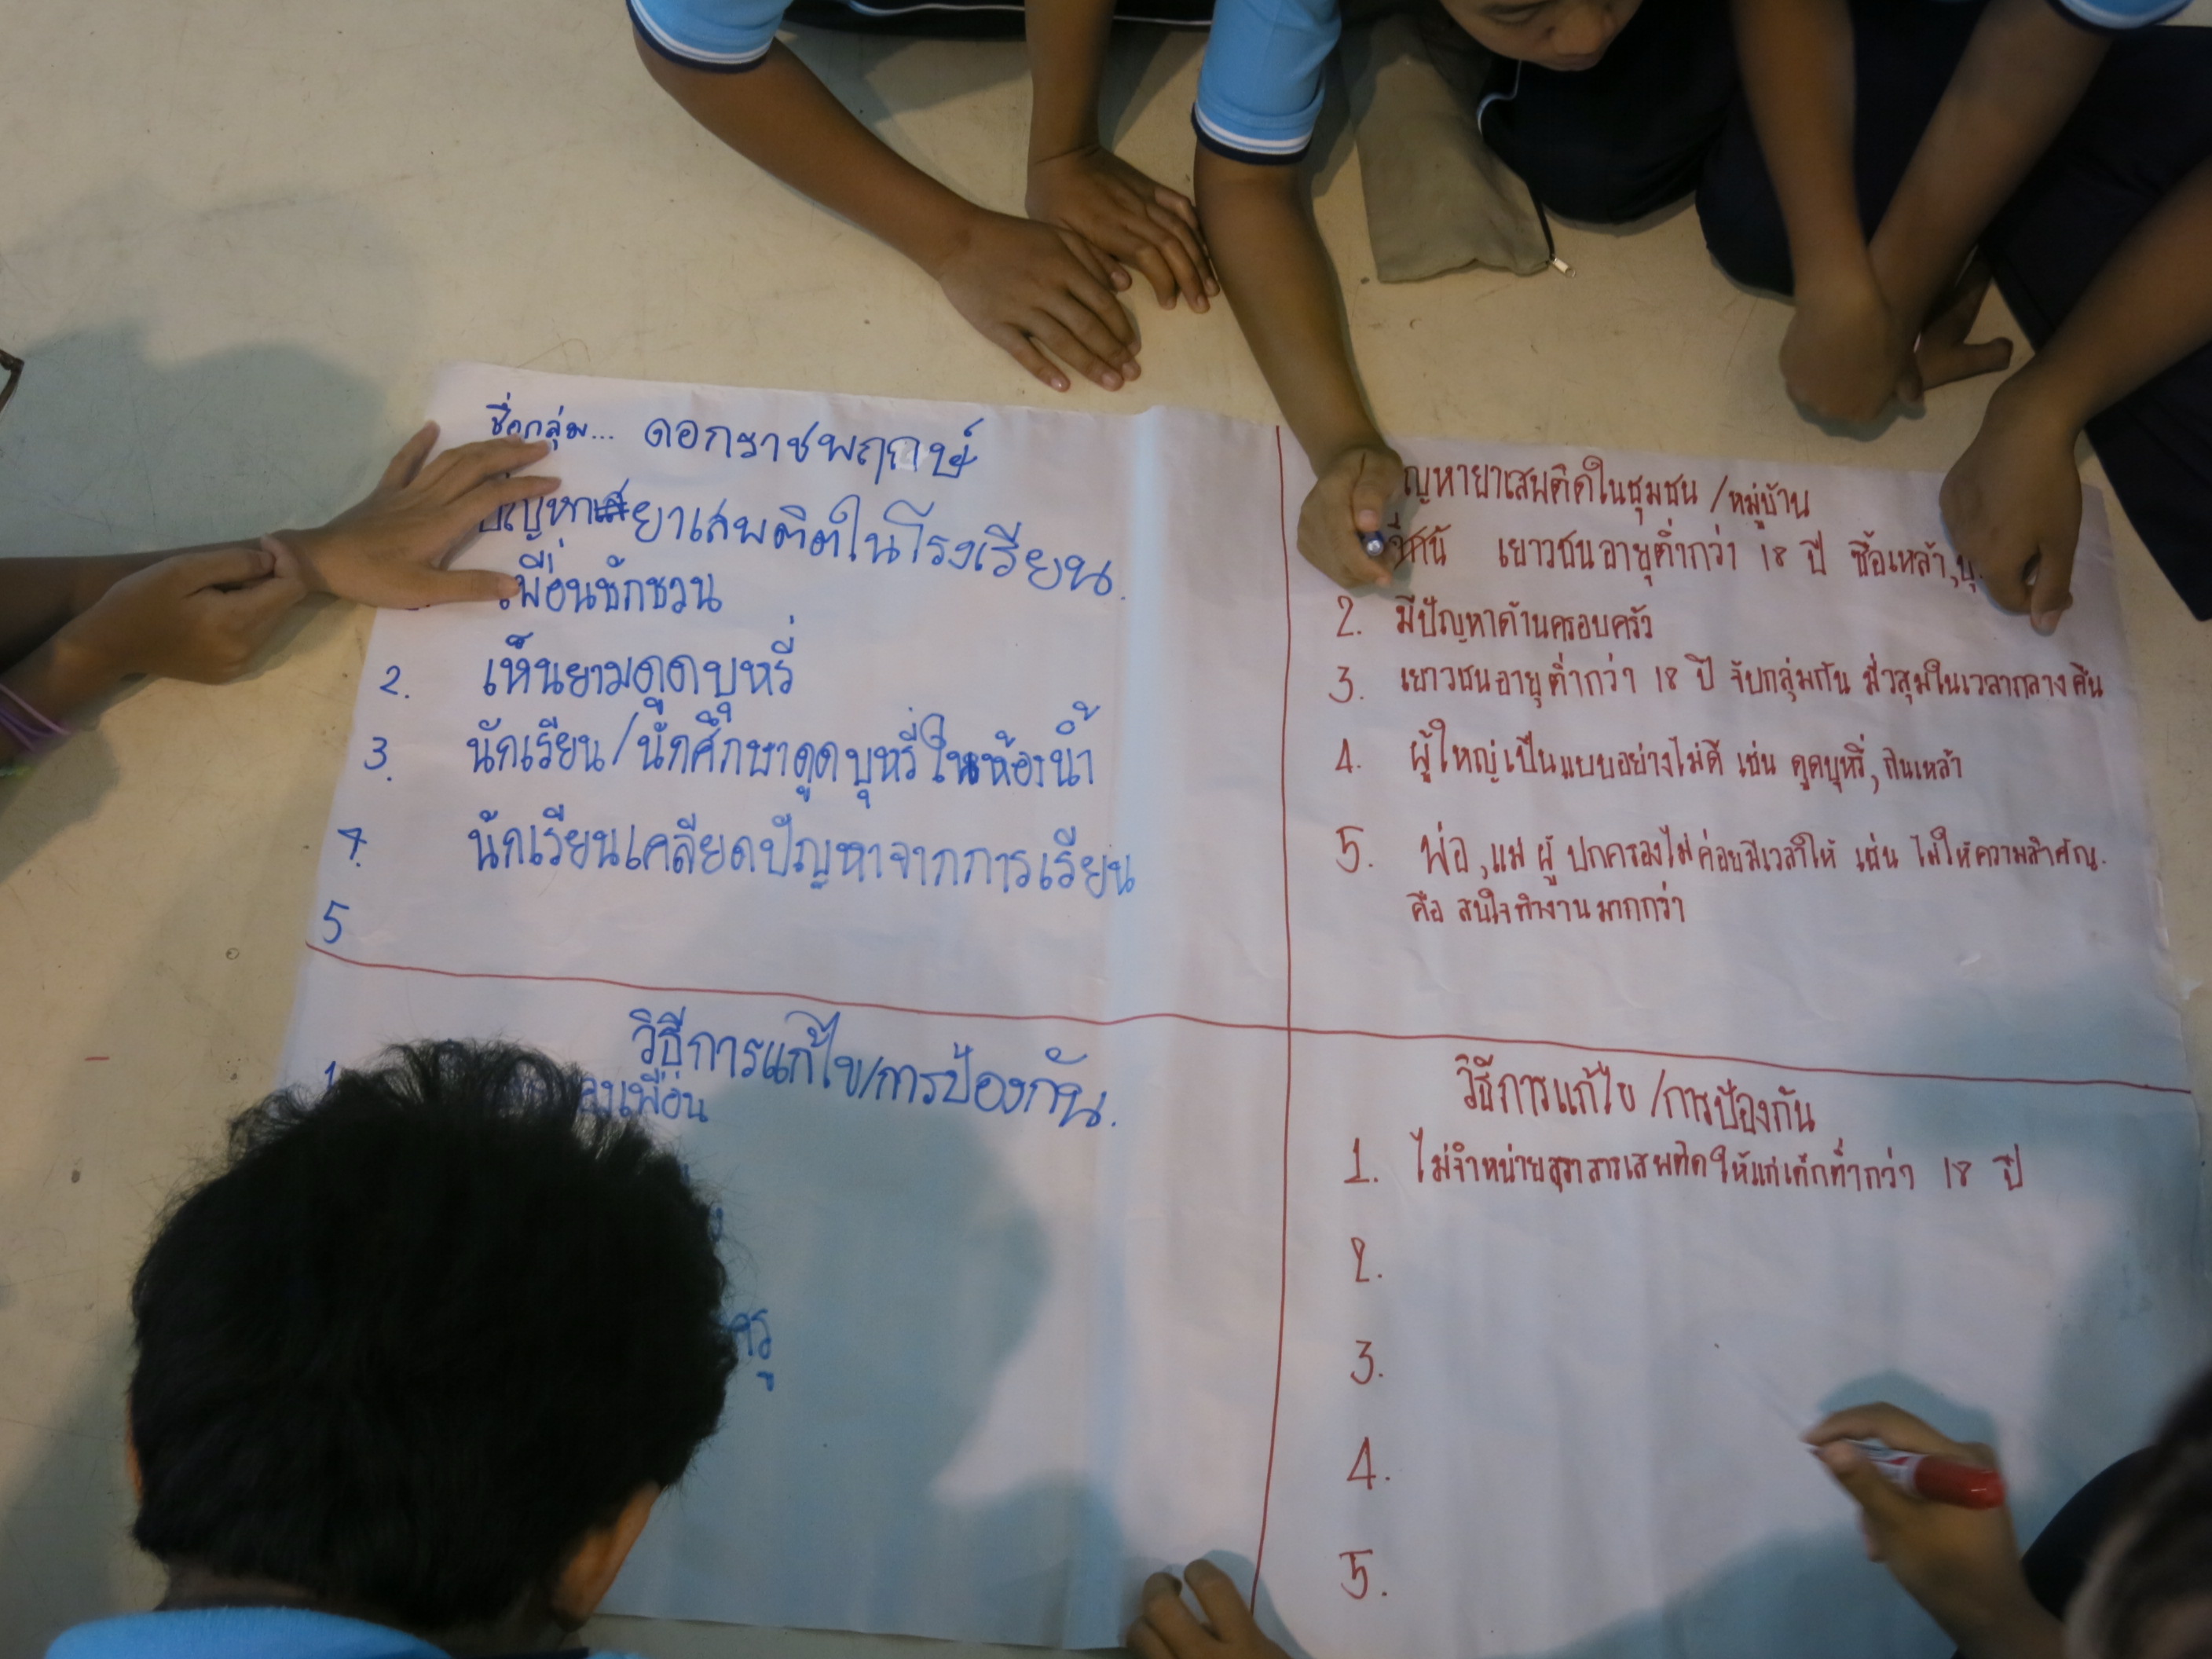 ชื่อกลุ่ม... ดอกราชพฤกษ์
ปัญหายาเสพติดในโรงเรียน.
เพื่อนชักชวน
2. เห็นยามดูดบุหรี่
3. นักเรียน/นักศึกษาดูดบุหรี่ในห้องน้ำ
4. นักเรียนเคลียดปัญหาจากการเรียน
5
วิธีการแก้ไข/การป้องกัน.
1.
เพื่อน
ครู
ญหายาเสพติดในชุมชน /หมู่บ้าน
เยาวชนอายุต่ำกว่า 18 ปี ซื้อเหล้า,
2. มีปัญหาด้านครอบครัว
3. เยาวชนอายุต่ำกว่า 18 ปี จับกลุ่มกัน มั่วสุมในเวลากลางคืน
4. ผู้ใหญ่เป็นแบบอย่างไม่ดี เช่น ดูดบุหรี่, กินเหล้า
5. พ่อ,แม่ ผู้ปกครองไม่ค่อยมีเวลาให้ เช่น ไม่ให้ความสำคัญ.
คือ สนใจทำงานมากกว่า
วิธีการแก้ไข /การป้องกัน
1. ไม่จำหน่ายสุราสารเสพติดให้แก่เด็กต่ำกว่า 18 ปี
2.
3.
4.
5.